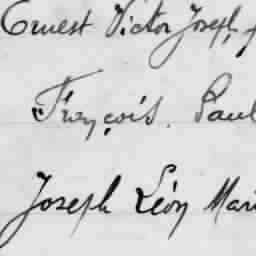 Ernest Victor Joseph
François. Paul
Joseph Léon Mari